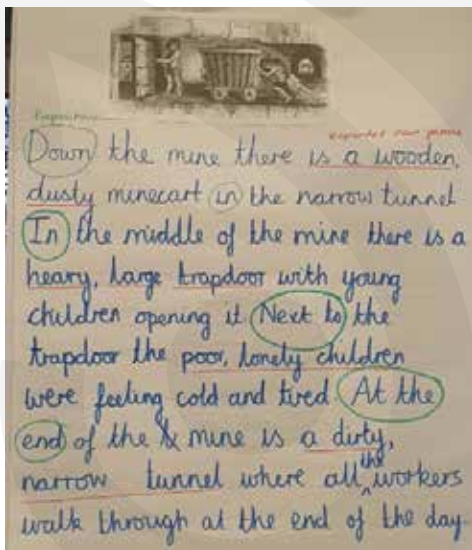 Prepositions
expanded noun phrase
Down the mine there is a wooden,
dusty minecart in the narrow tunnel
In the middle of the mine there is a
heavy, large trapdoor with young
children opening it Next to the
trapdoor the poor, lonely children
were feeling cold and tired At the
end of the mine is a dirty,
narrow tunnel where all the workers
walk through at the end of the day.